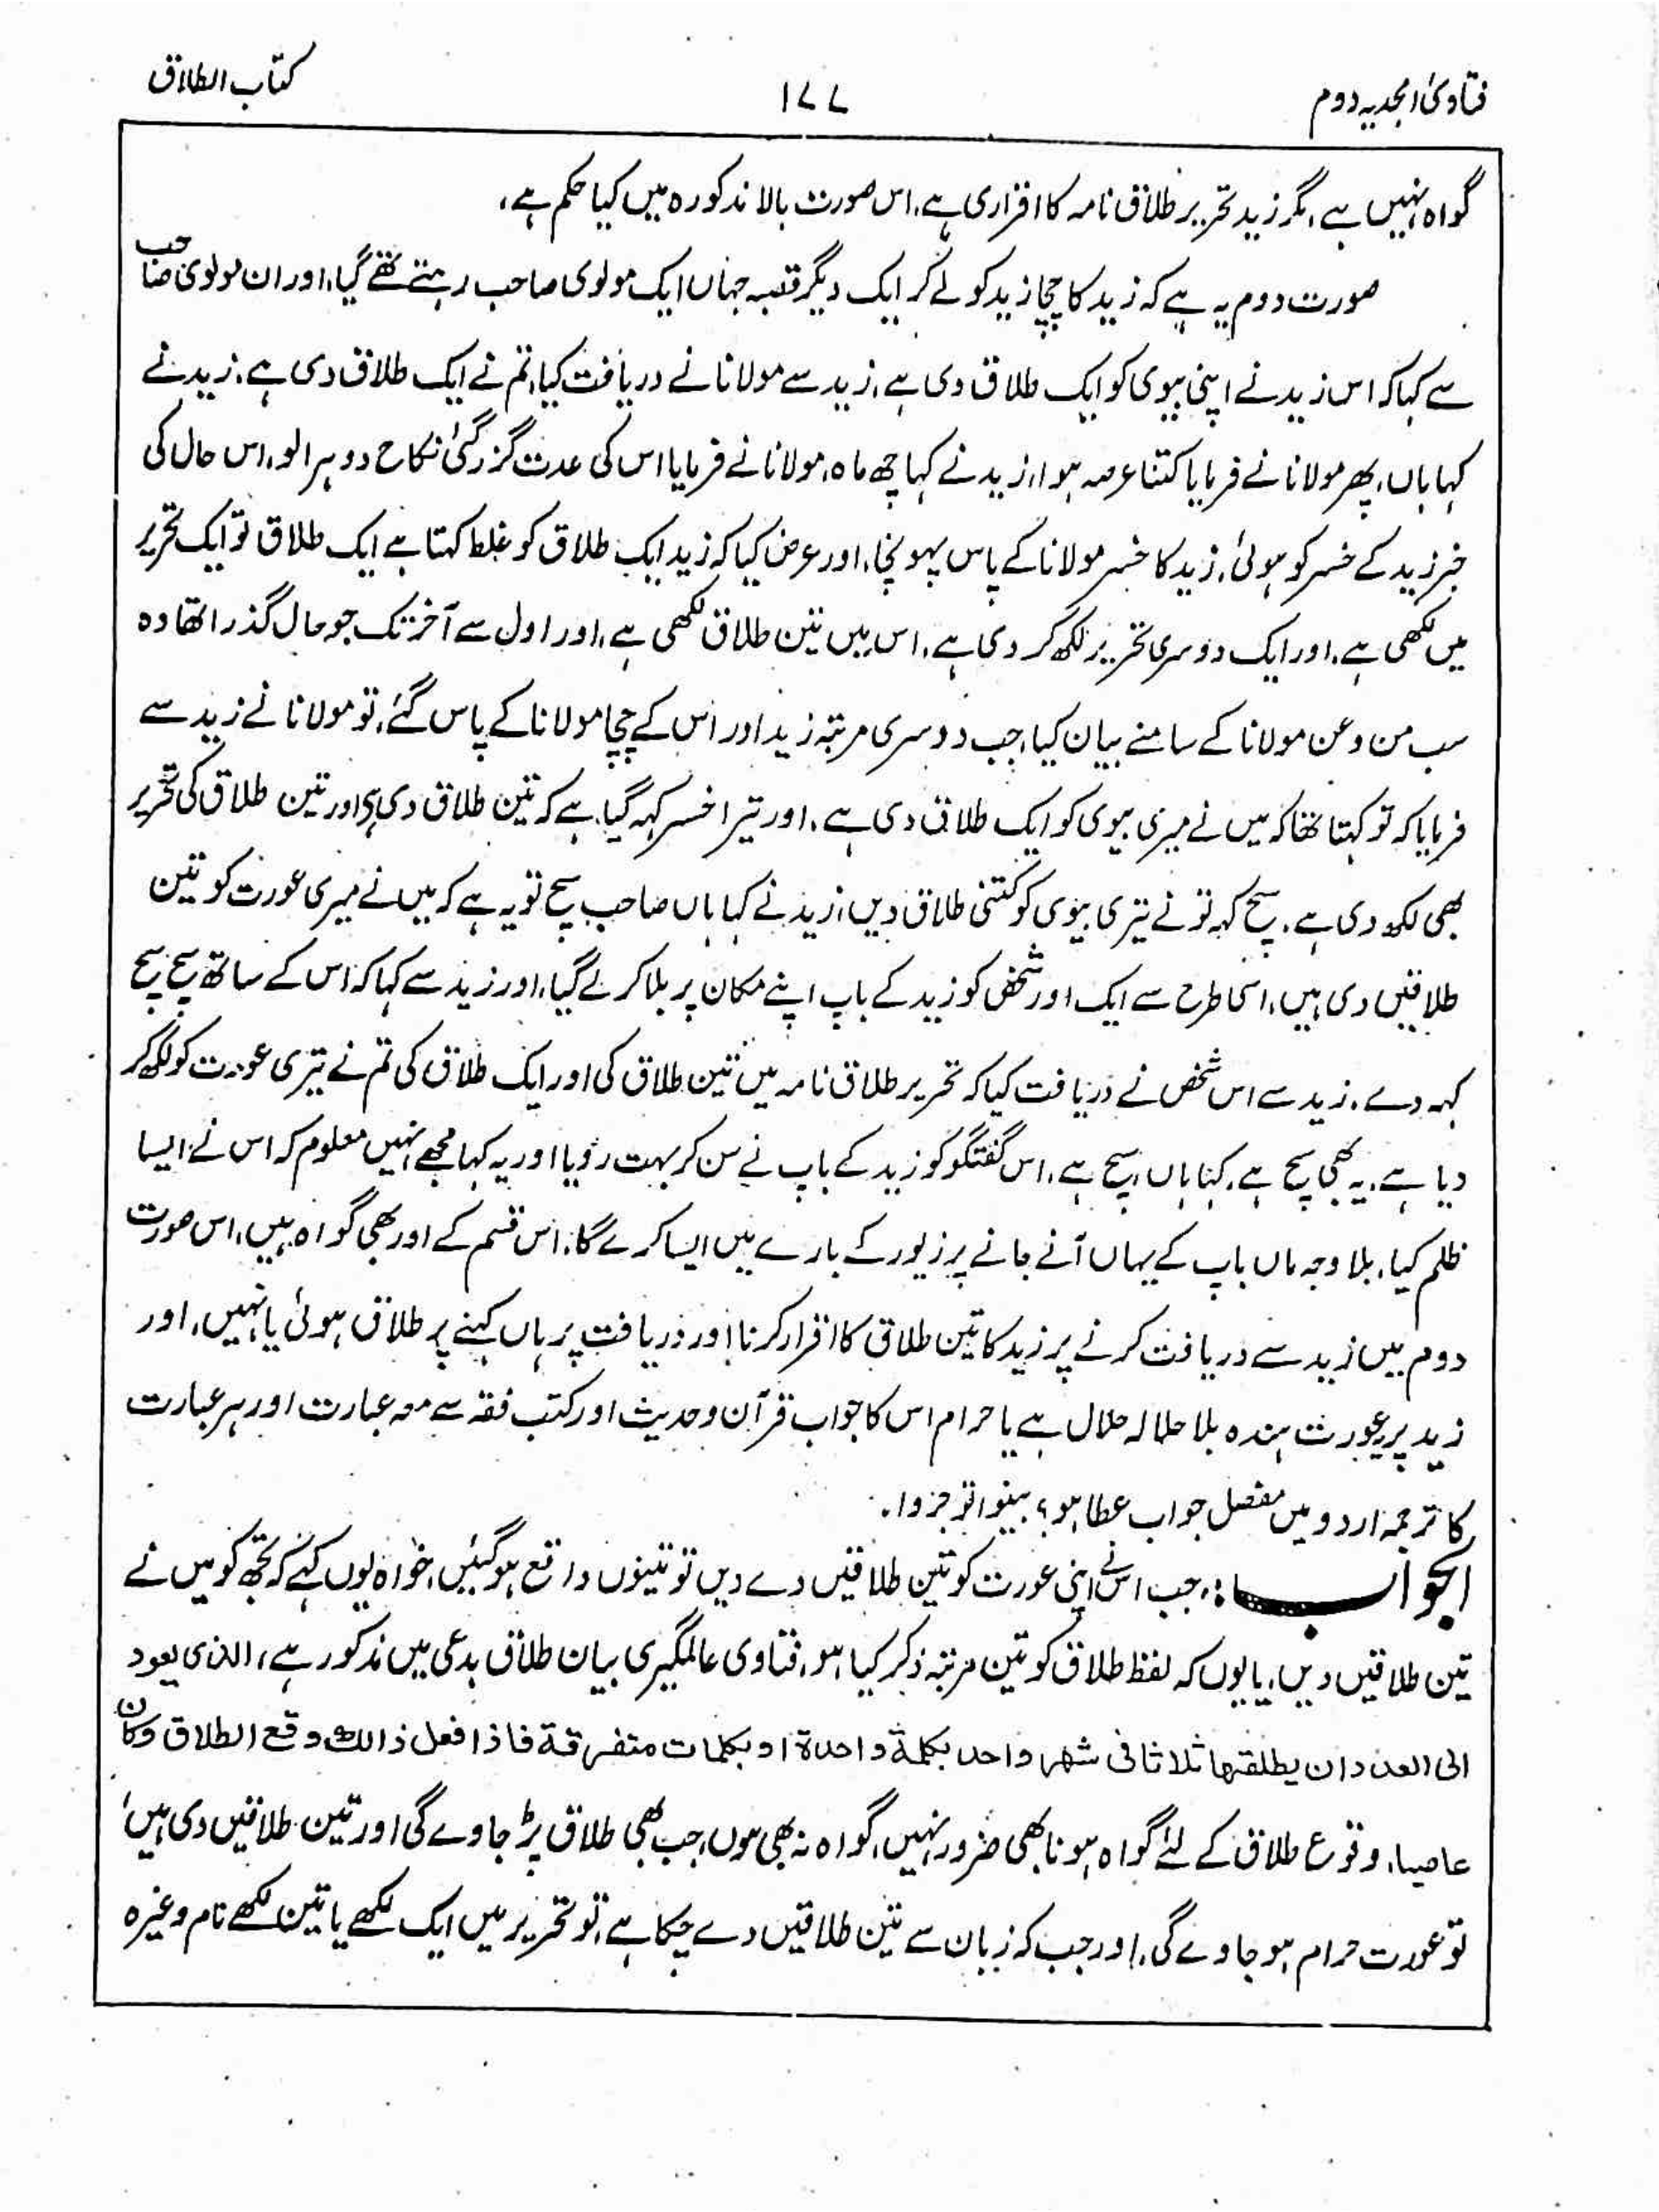 فتاویٰ امجدیہ دوم
۱۷۷
کتاب الطلاق
گواہ نہیں ہے، مگر زید تحریر طلاق نامہ کا اقراری ہے، اس صورت بالا مذکورہ میں کیا حکم ہے،
صورت دوم یہ ہے کہ زید کا چچا زید کو لے کر ایک دیگر قصبہ جہاں ایک مولوی صاحب رہتے تھے گیا، اور ان مولوی صاحب
سے کہا کہ اس زید نے اپنی بیوی کو ایک طلاق دی ہے، زید سے مولانا نے دریافت کیا، تم نے ایک طلاق دی ہے، زید نے
کہا ہاں، پھر مولانا نے فرمایا کتنا عرصہ ہوا، زید نے کہا چھ ماہ، مولانا نے فرمایا اس کی عدت گزر گئی نکاح دوہرا لو، اس حال کی
خبر زید کے خسر کو ہوئی، زید کا خسر مولانا کے پاس پہونچا، اور عرض کیا کہ زید ایک طلاق کو غلط کہتا ہے ایک طلاق تو ایک تحریر
میں لکھی ہے، اور ایک دوسری تحریر لکھ کر دی ہے، اس میں تین طلاق لکھی ہے، اور اول سے آخر تک جو حال گذرا تھا وہ
سب من وعن مولانا کے سامنے بیان کیا، جب دوسری مرتبہ زید اور اس کے چچا مولانا کے پاس گئے، تو مولانا نے زید سے
فرمایا کہ تو کہتا تھا کہ میں نے میری بیوی کو ایک طلاق دی ہے، اور تیرا خسر کہہ گیا ہے کہ تین طلاق دی ہے اور تین طلاق کی تحریر
بھی لکھ دی ہے، سچ کہہ تو نے تیری بیوی کو کتنی طلاق دیں، زید نے کہا ہاں صاحب سچ تو یہ ہے کہ میں نے میری عورت کو تین
طلاقیں دی ہیں، اسی طرح سے ایک اور شخص کو زید کے باپ اپنے مکان پر بلا کر لے گیا، اور زید سے کہا کہ اس کے ساتھ سچ سچ
کہہ دے، زید سے اس شخص نے دریافت کیا کہ تحریر طلاق نامہ میں تین طلاق کی اور ایک طلاق کی تم نے تیری عورت کو لکھ کر
دیا ہے، یہ بھی سچ ہے، کہا ہاں، سچ ہے، اس گفتگو کو زید کے باپ نے سن کر بہت رویا اور یہ کہا مجھے نہیں معلوم کہ اس نے ایسا
ظلم کیا، بلا وجہ ماں باپ کے یہاں آنے جانے پر زیور کے بارے میں ایسا کرے گا، اس قسم کے اور بھی گواہ ہیں، اس صورت
دوم میں زید سے دریافت کرنے پر زید کا تین طلاق کا اقرار کرنا اور دریافت پر ہاں کہنے پر طلاق ہوئی یا نہیں، اور
زید پر عورت ہندہ بلا حلالہ حلال ہے یا حرام اس کا جواب قرآن وحدیث اور کتب فقہ سے معہ عبارت اور ہر عبارت
کا ترجمہ اردو میں مفصل جواب عطا ہو؟ بینوا توجروا.
الجواب :، جب اس نے اپنی عورت کو تین طلاقیں دے دیں تو تینوں واقع ہو گئیں، خواہ یوں کہے کہ تجھ کو میں نے
تین طلاقیں دیں، یا یوں کہ لفظ طلاق کو تین مرتبہ ذکر کیا ہو، فتاوی عالمگیری بیان طلاق بدعی میں مذکور ہے، الذی یعود
الی العدد ان یطلقها ثلاثا فی شهر واحد بکلمة واحدة او بکلمات متفرقة فاذا فعل ذالك وقع الطلاق وکان
عاصیا، وقوع طلاق کے لئے گواہ ہونا بھی ضرور نہیں، گواہ نہ بھی ہوں، جب بھی طلاق پڑ جاوے گی اور تین طلاقیں دی ہیں،
تو عورت حرام ہو جاوے گی، اور جب کہ زبان سے تین طلاقیں دے چکا ہے، تو تحریر میں ایک لکھے یا تین لکھے نام وغیرہ